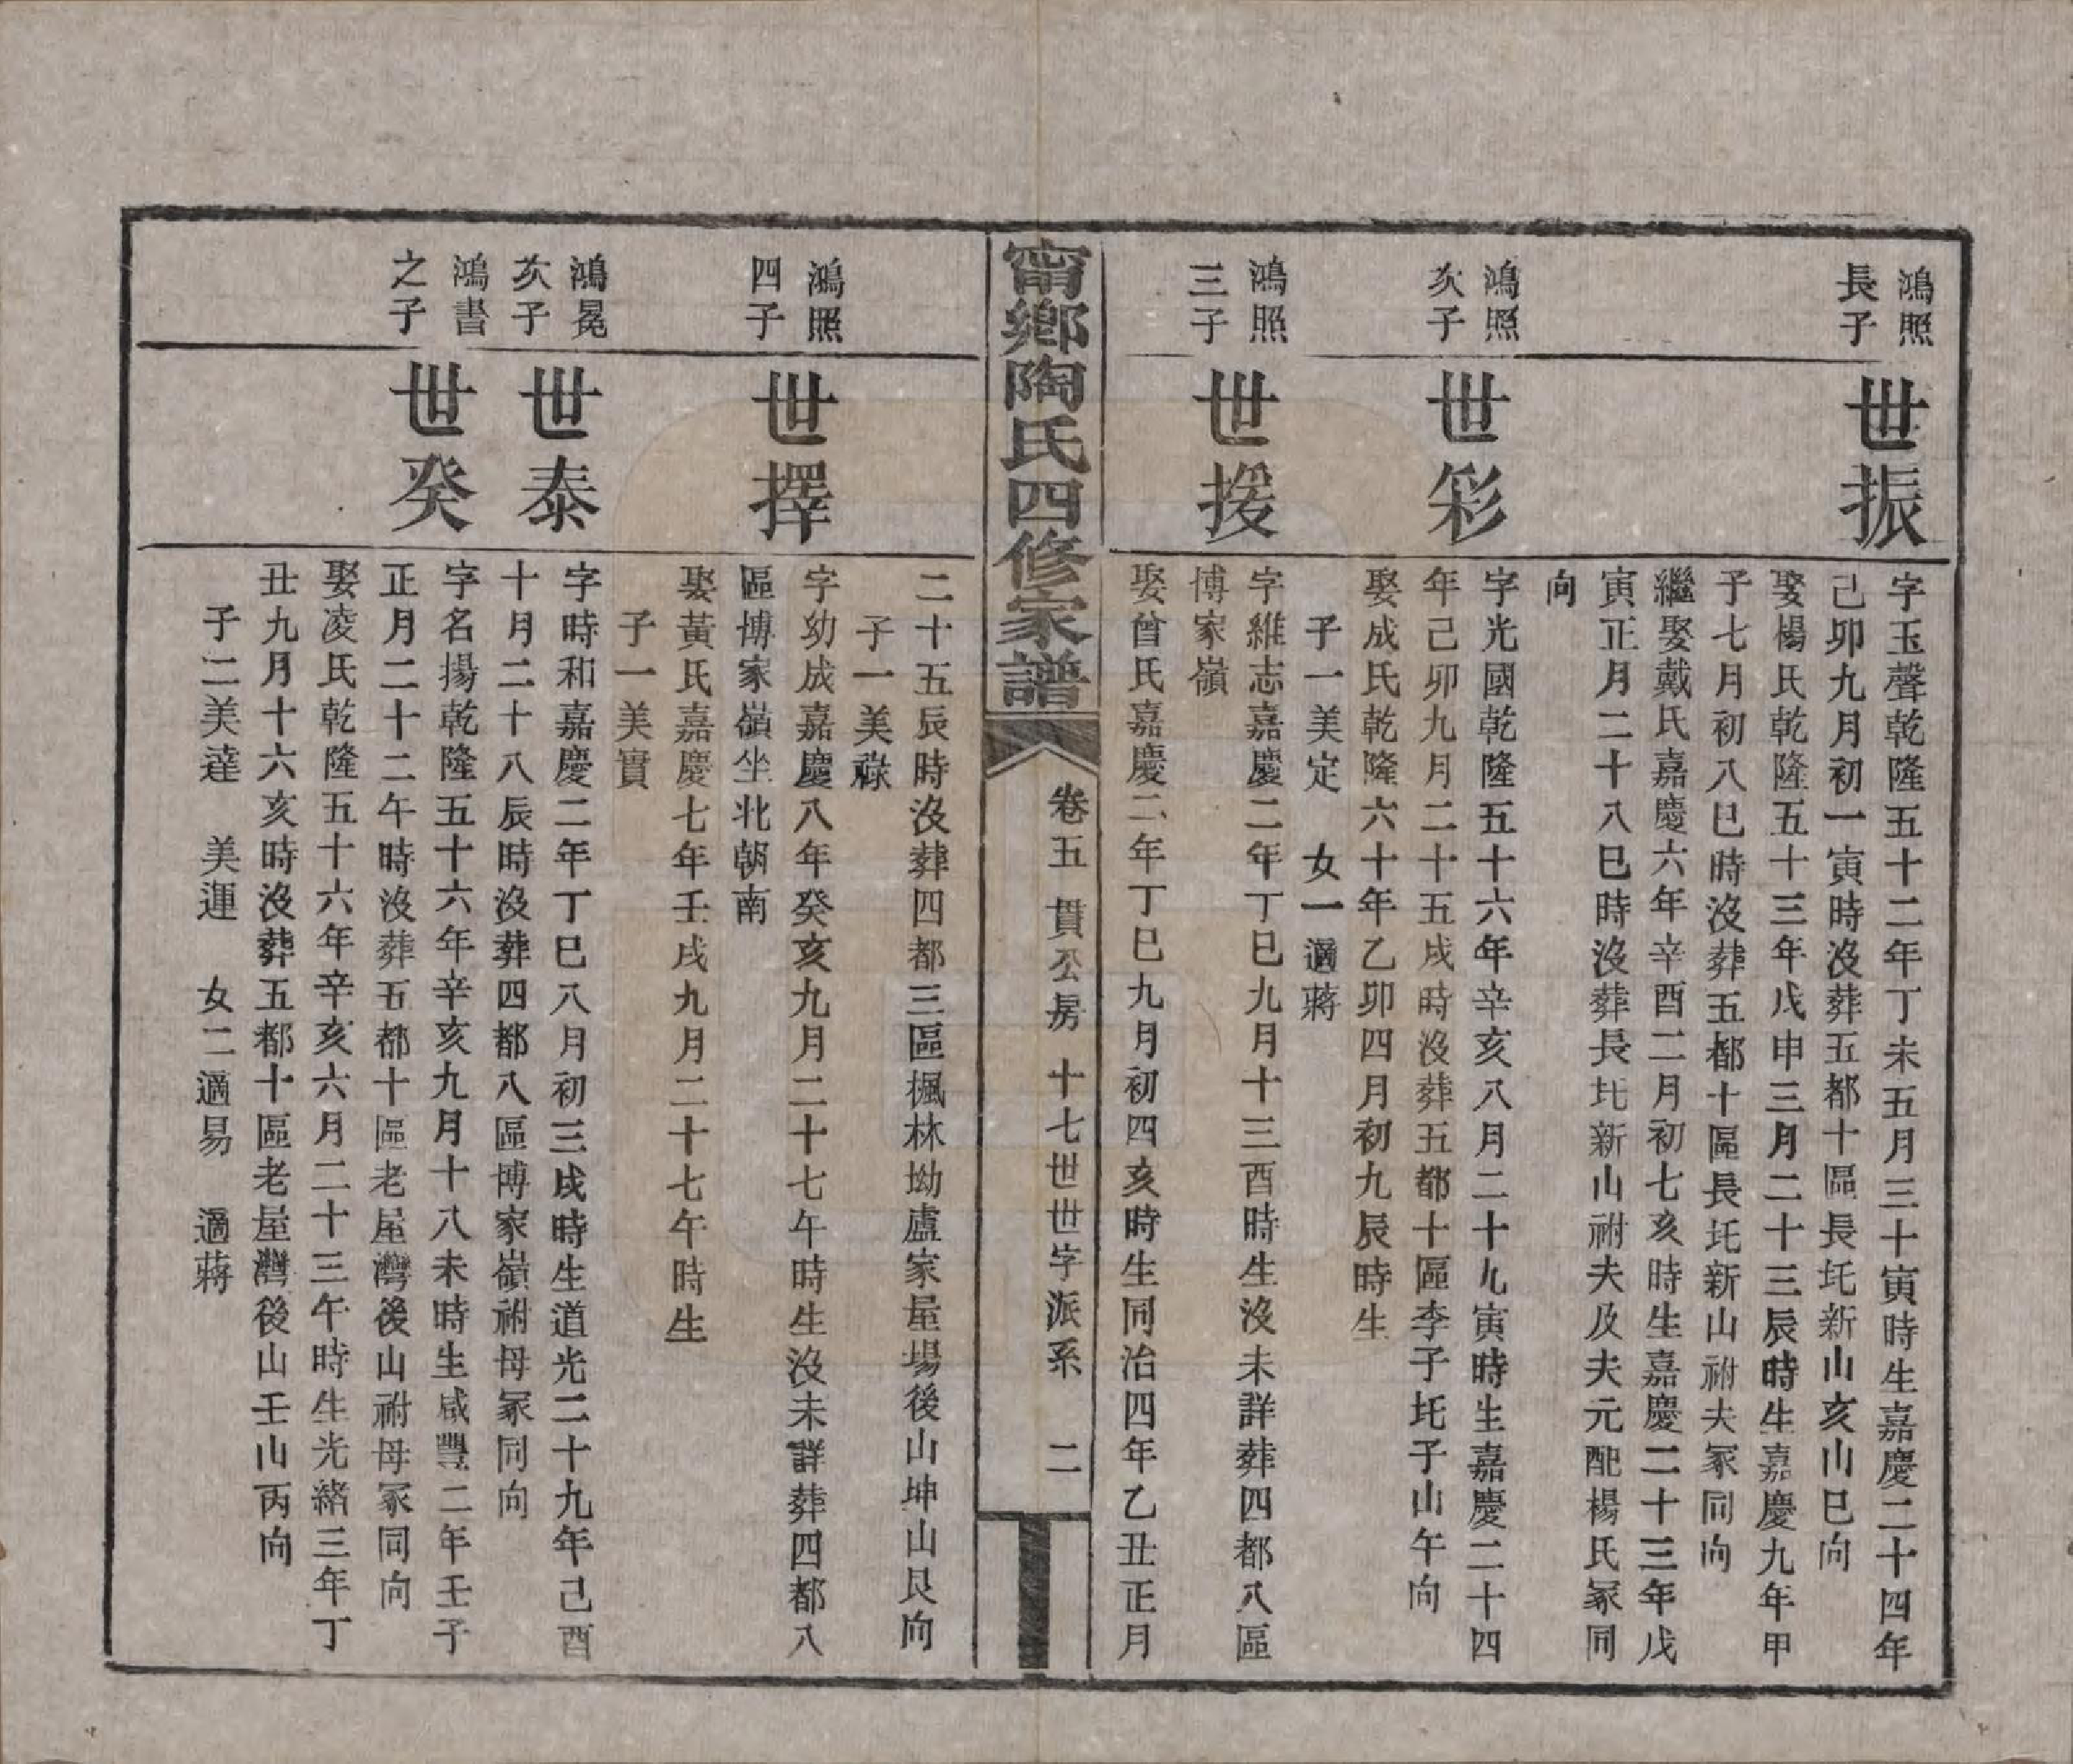 鴻照
長子
世振
字玉聲乾隆五十二年丁未五月三十寅時生嘉慶二十四年
己卯九月初一寅時沒葬五都十區長圫新山亥山巳向
娶楊氏乾隆五十三年戊申三月二十三辰時生嘉慶九年甲
子七月初八巳時沒葬五都十區長圫新山祔夫冢同向
繼娶戴氏嘉慶六年辛酉二月初七亥時生嘉慶二十三年戊
寅正月二十八巳時沒葬長圫新山祔夫及夫元配楊氏冢同
向
鴻照
次子
世彩
字光國乾隆五十六年辛亥八月二十九寅時生嘉慶二十四
年己卯九月二十五戌時沒葬五都十區李子圫子山午向
娶成氏乾隆六十年乙卯四月初九辰時生
子一美定 女一適蔣
鴻照
三子
世援
字維志嘉慶二年丁巳九月十三酉時生沒未詳葬四都八區
博家嶺
娶曾氏嘉慶二年丁巳九月初四亥時生同治四年乙丑正月
甯鄉陶氏四修家譜
卷五 貫公房 十七世世字派系 二
二十五辰時沒葬四都三區楓林坳盧家屋場後山坤山艮向
子一美祿
鴻照
四子
世擇
字幼成嘉慶八年癸亥九月二十七午時生沒未詳葬四都八
區博家嶺坐北朝南
娶黃氏嘉慶七年壬戌九月二十七午時生
子一美實
鴻冕
次子
世泰
字時和嘉慶二年丁巳八月初三戌時生道光二十九年己酉
十月二十八辰時沒葬四都八區博家嶺祔母冢同向
鴻書
之子
世癸
字名揚乾隆五十六年辛亥九月十八未時生咸豐二年壬子
正月二十二午時沒葬五都十區老屋灣後山祔母冢同向
娶凌氏乾隆五十六年辛亥六月二十三午時生光緒三年丁
丑九月十六亥時沒葬五都十區老屋灣後山壬山丙向
子二美達 美運 女二適易 適蔣